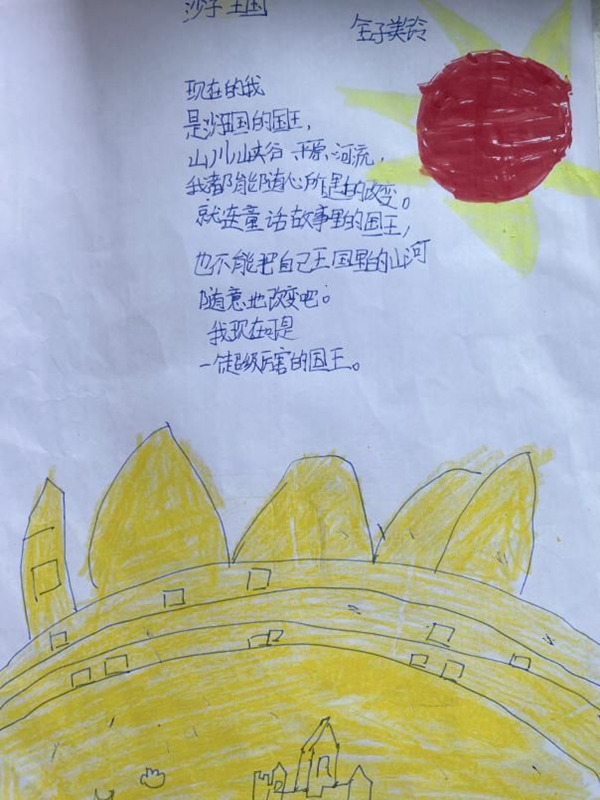 沙子王国
金子美铃
现在的我
是沙子王国的国王，
山川 峡谷 平原 河流，
我都能随心所遇的改变。
就连童话故事里的国王，
也不能把自己王国里的山河
随意地改变吧。
我现在可是
一个超级厉害的国王。